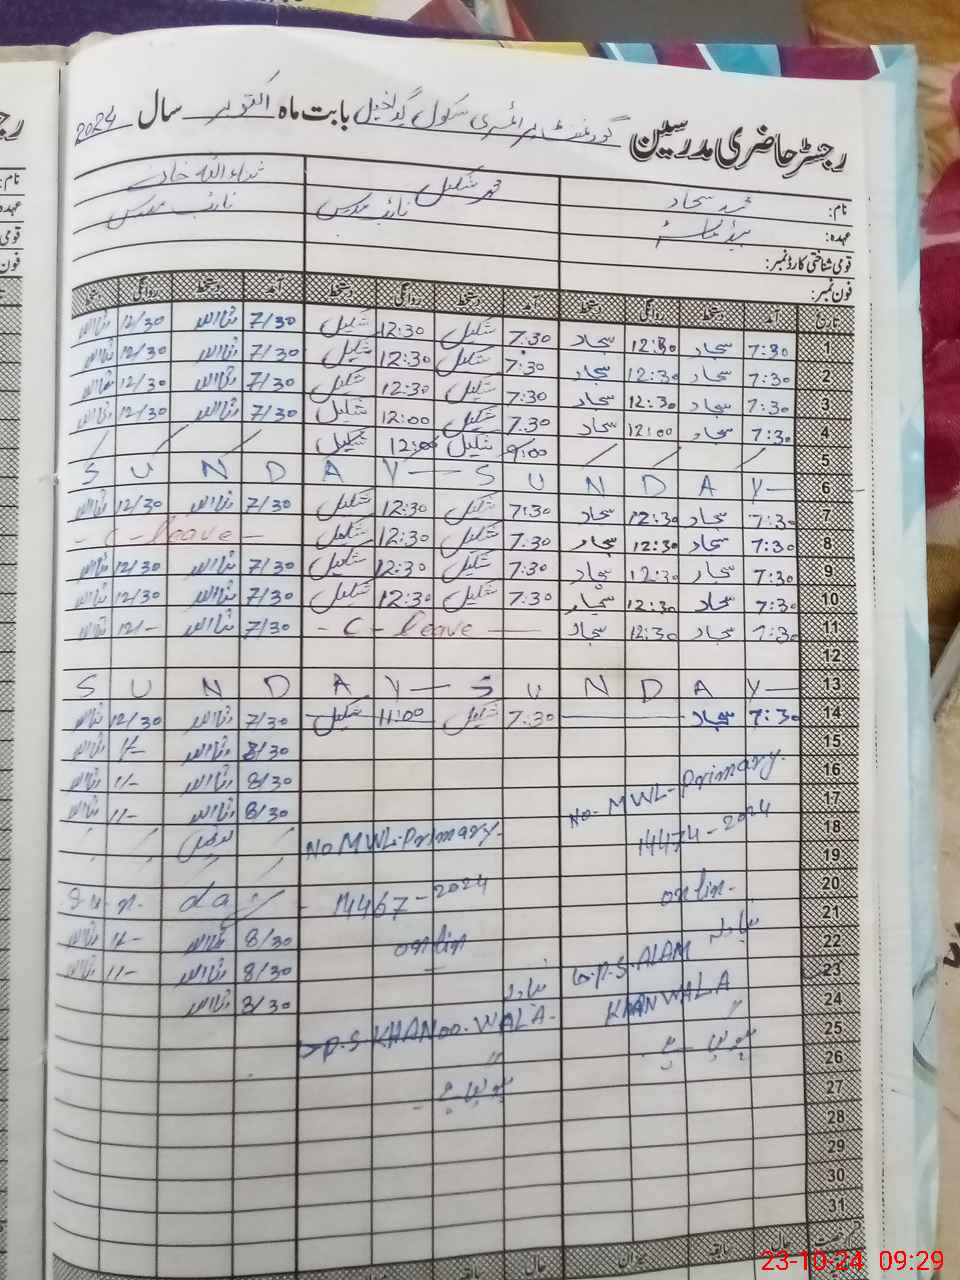 رجسٹر حاضری مدرسین گورنمنٹ پرائمری سکول بابت ماہ اکتوبر سال 2024
نام: محمد سجاد محمد شکیل ثناء اللہ خان
عہدہ: ہیڈ ماسٹر نائب مدرس نائب مدرس
قومی شناختی کارڈ نمبر:
فون نمبر:
تاریخ آمد دستخط روانگی دستخط آمد دستخط روانگی دستخط آمد دستخط روانگی دستخط
1 7:30 سجاد 12:30 سجاد 7:30 شکیل 12:30 شکیل 7/30 ثناءاللہ 12/30 ثناءاللہ
2 7:30 سجاد 12:30 سجاد 7:30 شکیل 12:30 شکیل 7/30 ثناءاللہ 12/30 ثناءاللہ
3 7:30 سجاد 12:30 سجاد 7:30 شکیل 12:30 شکیل 7/30 ثناءاللہ 12/30 ثناءاللہ
4 7:30 سجاد 12:00 سجاد 7:30 شکیل 12:00 شکیل 7/30 ثناءاللہ 12/30 ثناءاللہ
5 9:00 شکیل 12:00 شکیل
6 S U N D A Y — S U N D A Y —
7 7:30 سجاد 12:30 سجاد 7:30 شکیل 12:30 شکیل 7/30 ثناءاللہ 12/30 ثناءاللہ
8 7:30 سجاد 12:30 سجاد 7:30 شکیل 12:30 شکیل - C - leave -
9 7:30 سجاد 12:30 سجاد 7:30 شکیل 12:30 شکیل 7/30 ثناءاللہ 12/30 ثناءاللہ
10 7:30 سجاد 12:30 سجاد 7:30 شکیل 12:30 شکیل 7/30 ثناءاللہ 12/30 ثناءاللہ
11 7:30 سجاد 12:30 سجاد - C - leave — 7/30 ثناءاللہ 12/- ثناءاللہ
12
13 S U N D A Y — S U N D A Y —
14 7:30 سجاد 7:30 شکیل 11:00 شکیل 7/30 ثناءاللہ 12/30 ثناءاللہ
15 8/30 ثناءاللہ 1/- ثناءاللہ
16 No. MWL-Primary. 8/30 ثناءاللہ 1/- ثناءاللہ
17 8/30 ثناءاللہ 1/- ثناءاللہ
18 14474-2024 No MWL-Primary.
19
20 onlin. 14467-2024 Sun. day
21 تبادلہ onlin 8/30 ثناءاللہ 1/- ثناءاللہ
22 G.P.S. ALAM 8/30 ثناءاللہ 1/- ثناءاللہ
23 KHAN WALA تبادلہ 8/30 ثناءاللہ
24 ہو گیا ہے. G.P.S KHANOO. WALA-
25
26 ہو گیا ہے.
27
28
29
30
31
میزان
23-10-24 09:29